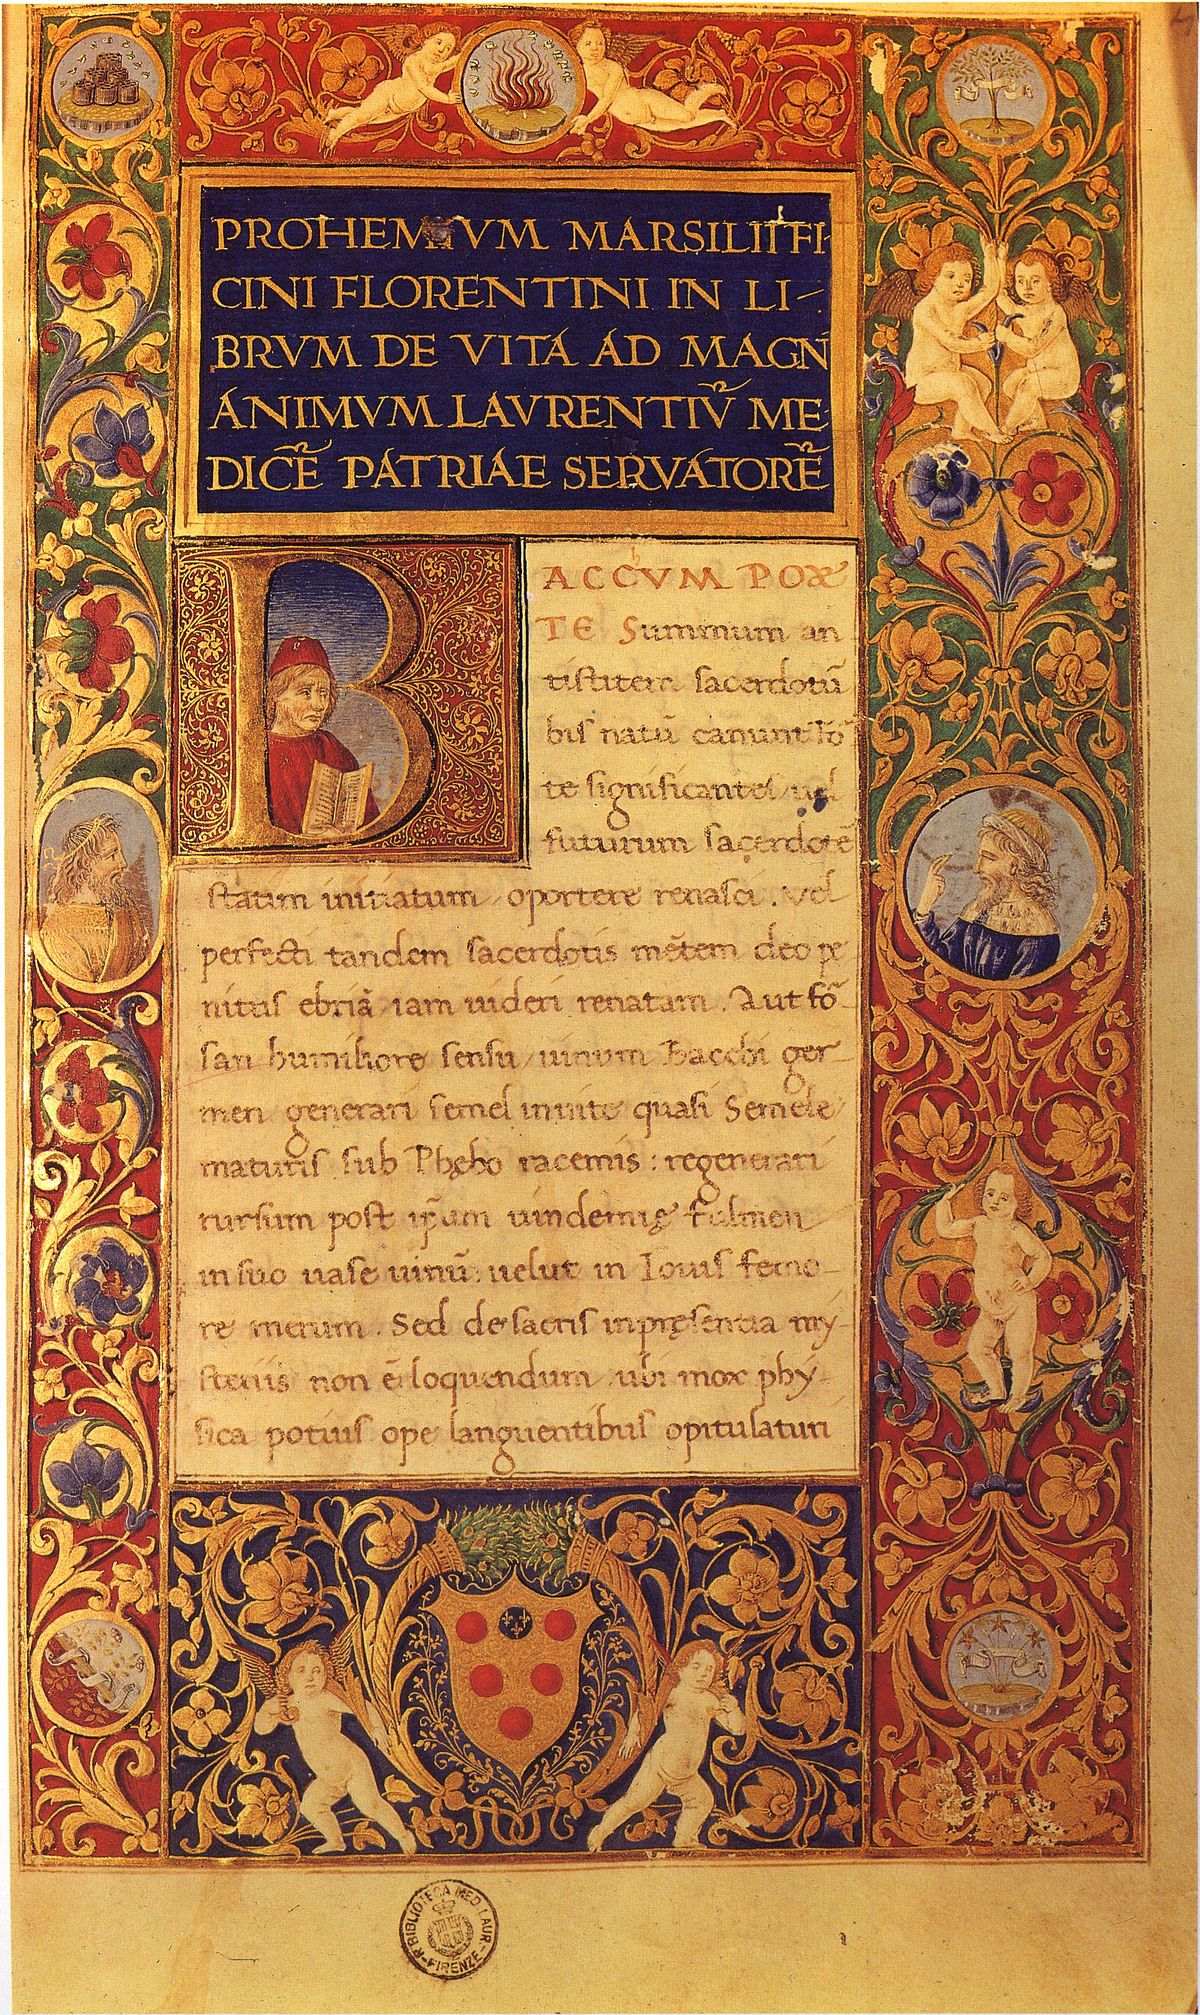 PROHEMIVM MARSILII FI-
CINI FLORENTINI IN LI-
BRVM DE VITA AD MAGN
ANIMVM LAVRENTIV̄ ME-
DICĒ PATRIAE SERVATORĒ
BACChVM POE
TE Summum an
tistitem sacerdotū
bis natū canunt fo
te significantes uel
futurum sacerdotē
statim initiatum oportere renasci. Vel
perfecti tandem sacerdotis mētem deo pe
nitus ebriā iam uideri renatam. Aut fo
san humiliore sensu uinum Bacchi ger
men generari semel in uite quasi Semele
maturis sub Phębo racemis: regenerari
rursum post ip̄um uindemię fulmen
in suo uase uinū: uelut in Iouis femo-
re merum. Sed de sacris in pręsentia my-
steriis non ē loquendum ubi mox phy-
sica potius ope languentibus opitulaturi
R. BIBLIOTECA MED. LAUR.
FIRENZE